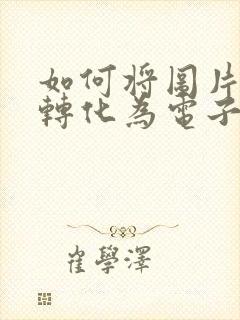 如何将圖片
轉化為電子
崔學澤